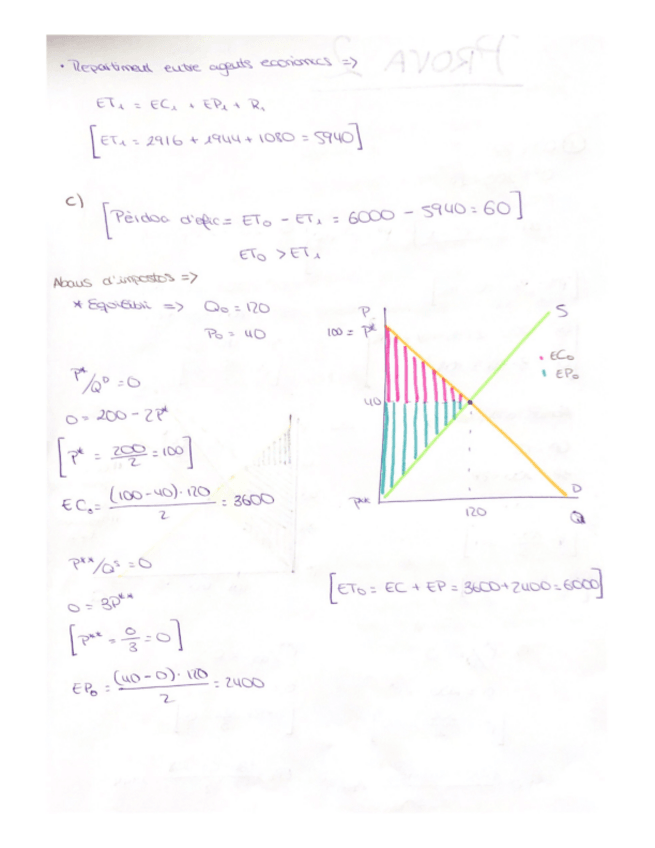 PROVA 2
• Repartiment entre agents econòmics =>
ET₁ = EC₁ + EP₁ + R₁
[ET₁ = 2916 + 1944 + 1080 = 5940]
c) [Pèrdua d'efic = ET₀ - ET₁ = 6000 - 5940 = 60]
ET₀ > ET₁
Abans d'impostos =>
* Equilibri => Q₀ = 120
P₀ = 40
P*/Qᴰ = 0
0 = 200 - 2P*
[P* = 200/2 = 100]
EC₀ = (100-40)·120/2 = 3600
P**/Qˢ = 0
0 = 3P**
[P** = 0/3 = 0]
EP₀ = (40-0)·120/2 = 2400
P
S
100 = P*
• EC₀
EP₀
40
P**
120
D
Q
[ET₀ = EC + EP = 3600+2400 = 6000]